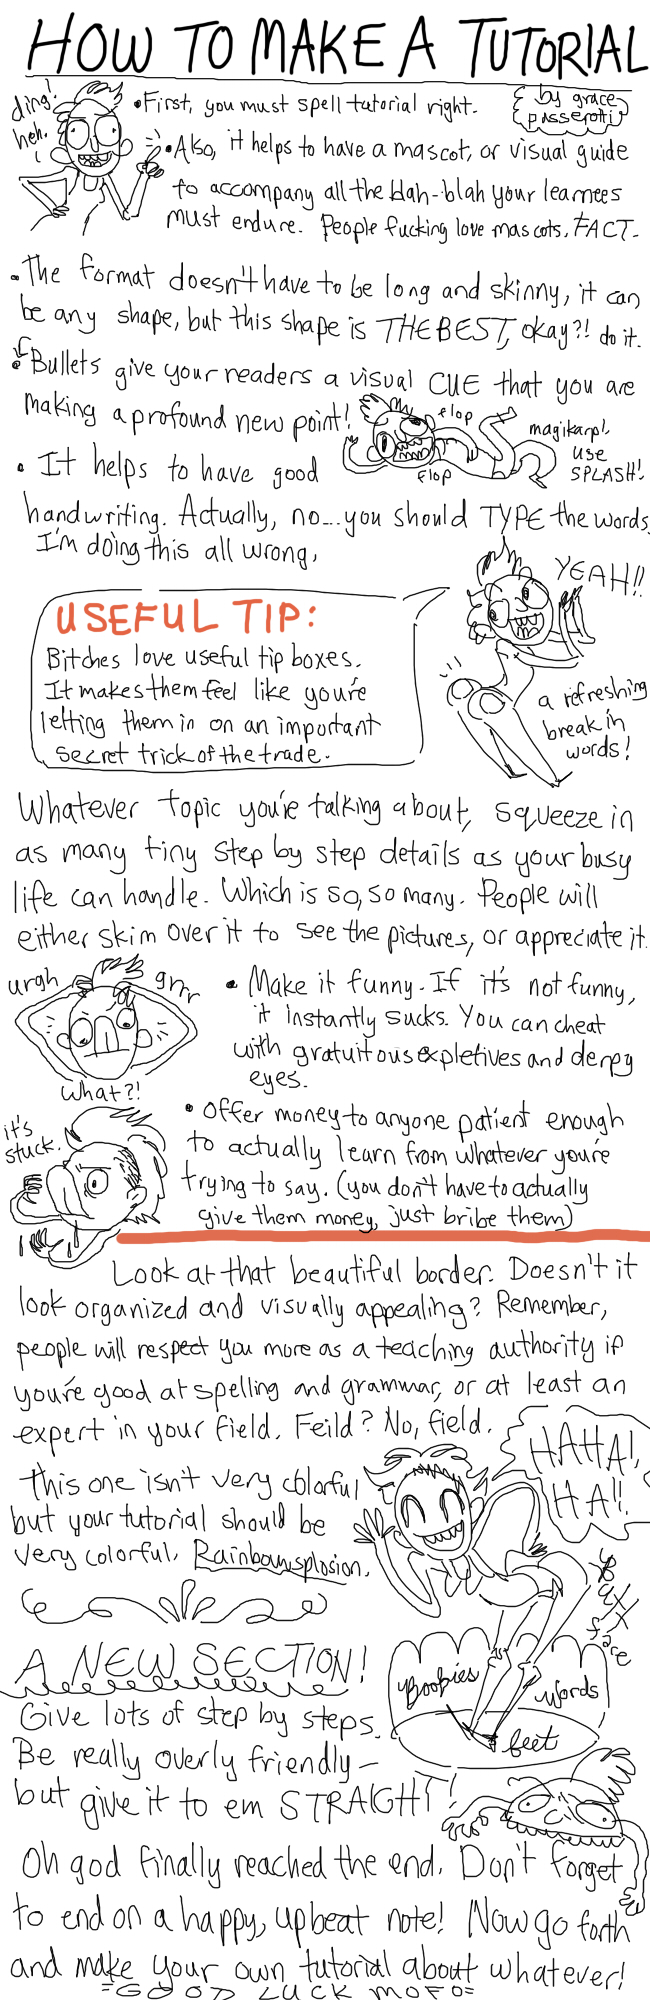 HOW TO MAKE A TUTORIAL
by grace
passerotti
ding!
heh.
•First, you must spell tutorial right.
•Also, it helps to have a mascot, or visual guide
to accompany all the blah-blah your learnees
must endure. People fucking love mascots. FACT.
•The format doesn't have to be long and skinny, it can
be any shape, but this shape is THE BEST, okay?! do it.
•Bullets give your readers a visual CUE that you are
making a profound new point!
flop
flop
magikarp!
use
SPLASH!
• It helps to have good
handwriting. Actually, no...you should TYPE the words,
I'm doing this all wrong.
YEAH!!
USEFUL TIP:
Bitches love useful tip boxes.
It makes them feel like you're
letting them in on an important
secret trick of the trade.
a refreshing
break in
words!
Whatever topic you're talking about, squeeze in
as many tiny step by step details as your busy
life can handle. Which is so, so many. People will
either skim over it to see the pictures, or appreciate it.
urgh
grrr
what?!
• Make it funny. If it's not funny,
it instantly sucks. You can cheat
with gratuitous expletives and derpy
eyes.
it's
stuck.
• Offer money to anyone patient enough
to actually learn from whatever you're
trying to say. (you don't have to actually
give them money, just bribe them)
Look at that beautiful border. Doesn't it
look organized and visually appealing? Remember,
people will respect you more as a teaching authority if
you're good at spelling and grammar, or at least an
expert in your field. Feild? No, field.
HAHA!,
HA!!
This one isn't very colorful
but your tutorial should be
very colorful. Rainbowsplosion.
face
A NEW SECTION!
Boobies
words
feet
Give lots of step by steps.
Be really overly friendly-
but give it to em STRAIGHT!
Oh god finally reached the end. Don't forget
to end on a happy, upbeat note! Now go forth
and make your own tutorial about whatever!
=GOOD LUCK MOFO=